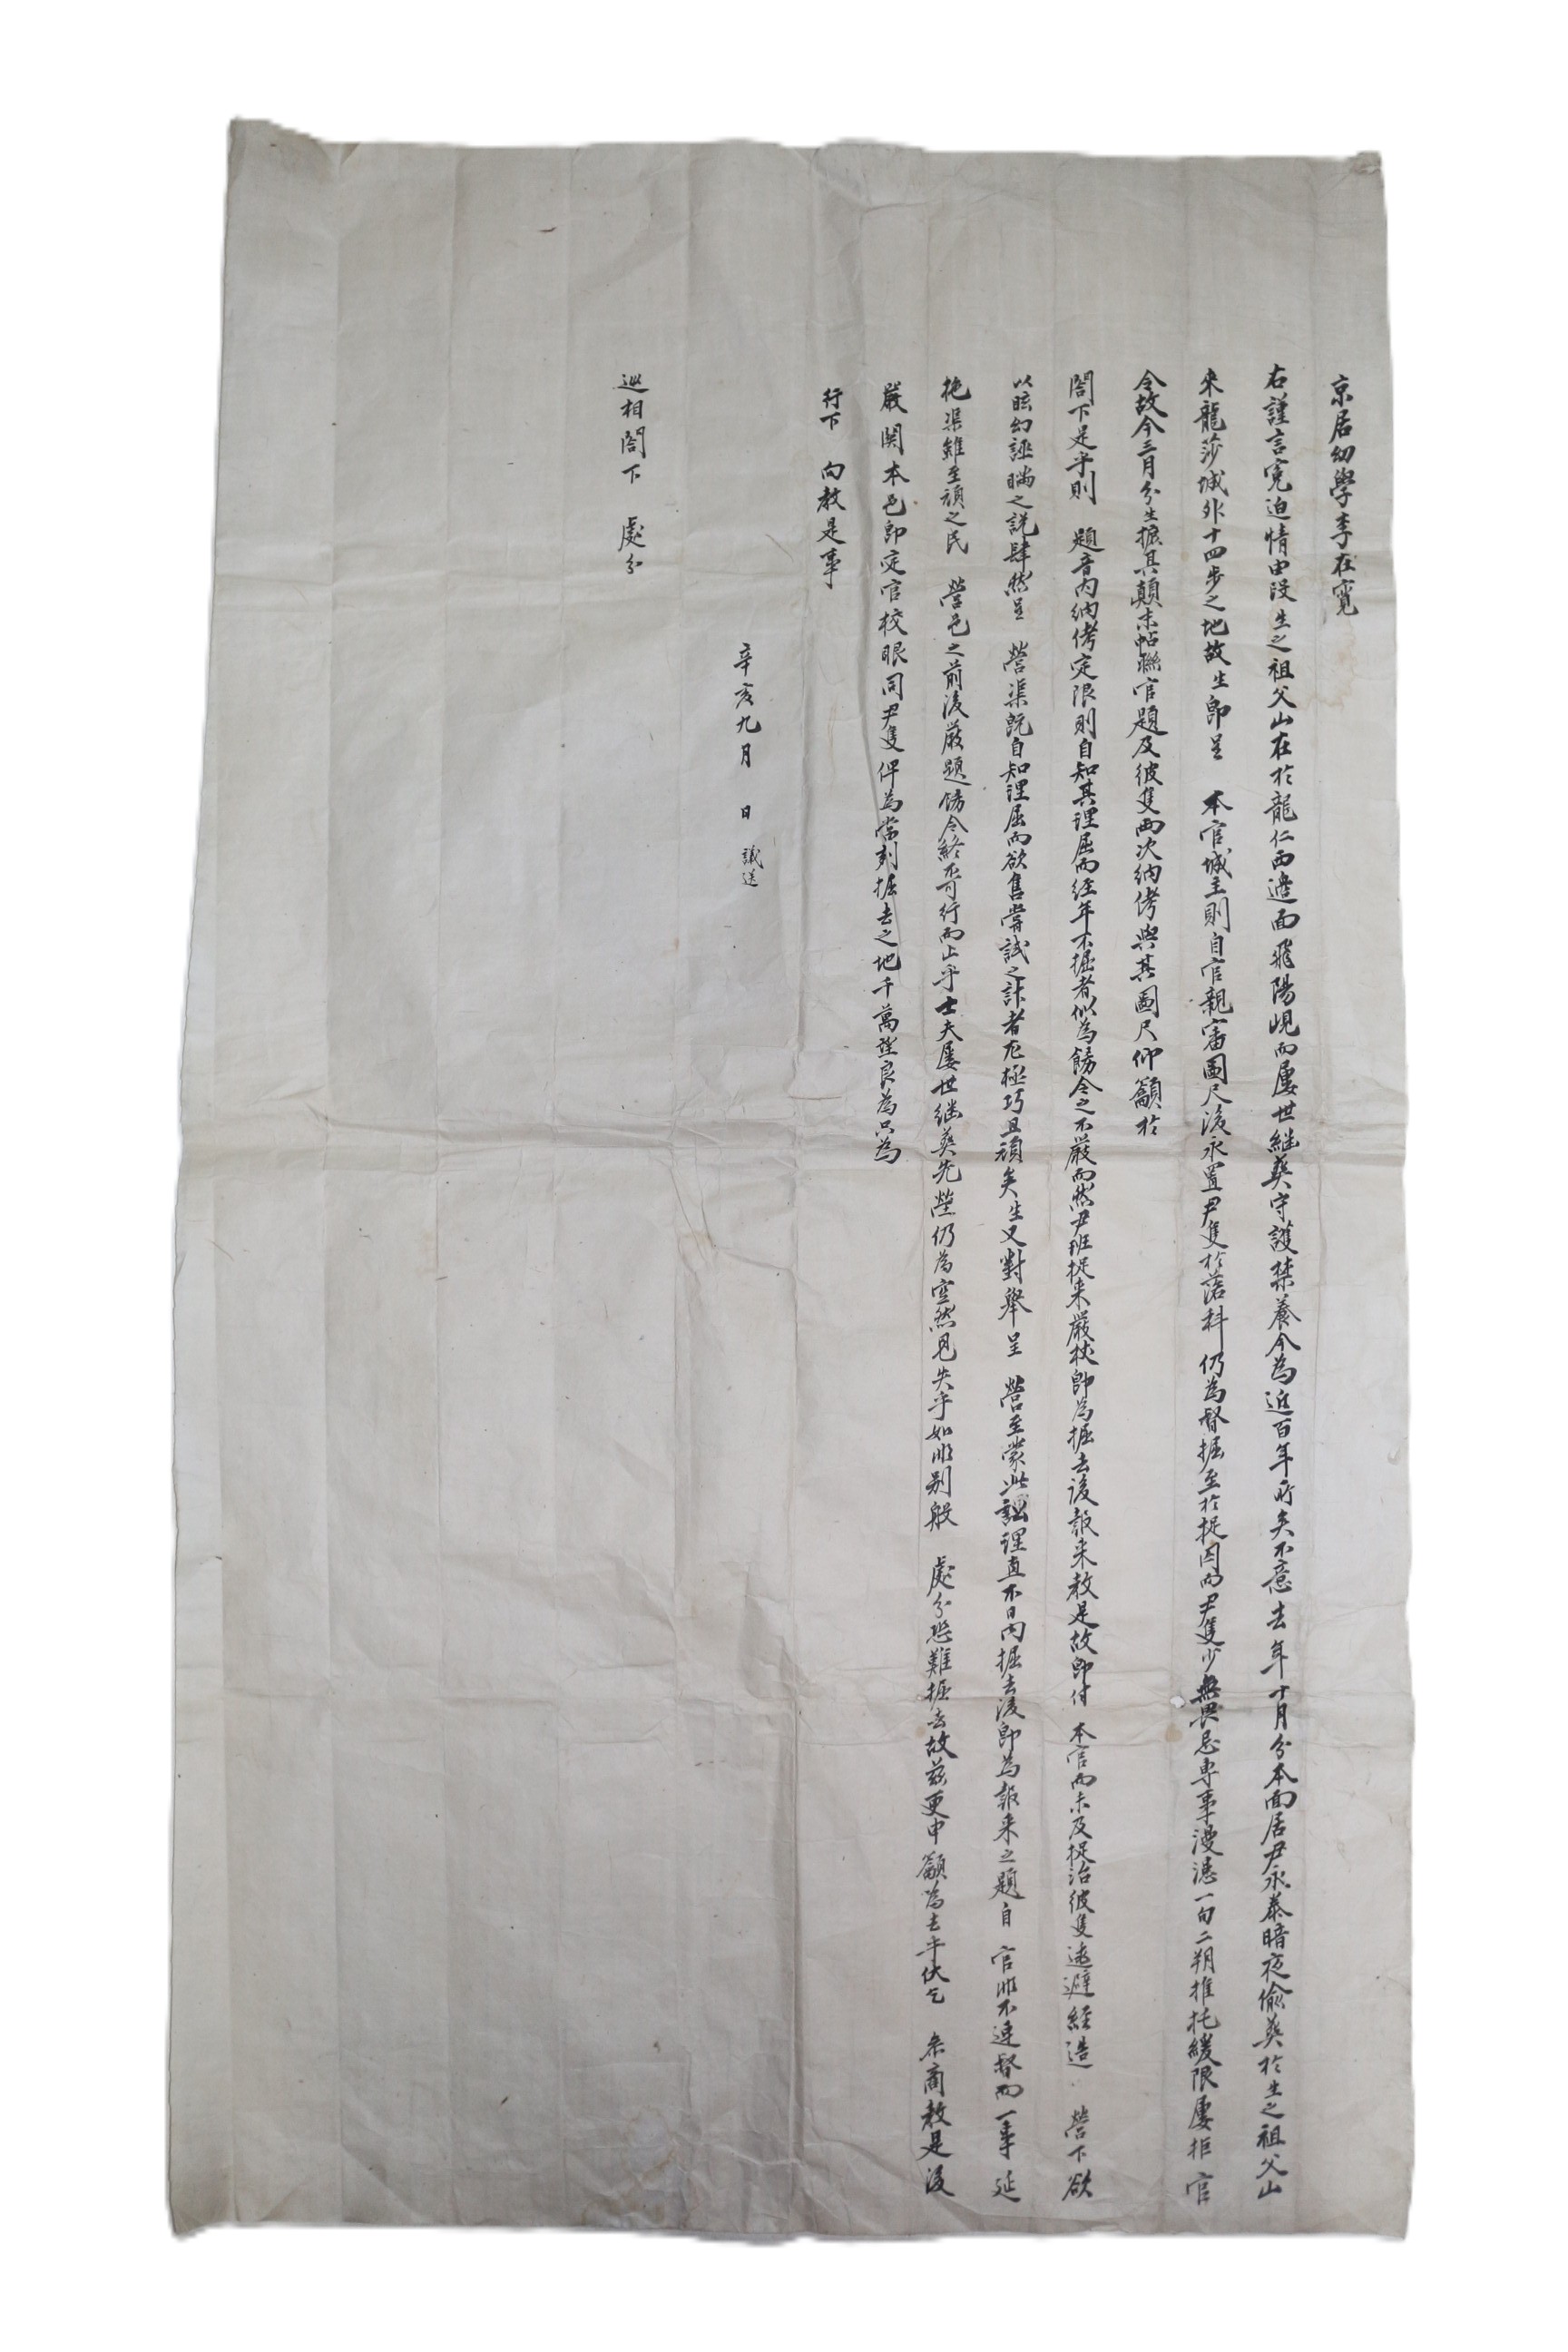 京居幼學李在寬
右謹言寃迫情由段生之祖父山在於龍仁西邊面飛陽峴而屢世繼葬守護禁養今為近百年所矣不意去年十月分本面居尹永泰暗夜偸葬於生之祖父山
來龍莎城外十四步之地故生卽呈 本官城主則自官親審圖尺後永置尹隻於落科仍為督掘至於捉囚而尹隻少無畏忌專事漫漶一旬二朔推托緩限屢拒 官
令故今三月分生掘其顚末帖聯官題及彼隻兩次納侤與其圖尺仰籲於
閤下是乎則 題音內納侤定限則自知其理屈而經年不掘者似為飭令之不嚴而然尹班捉來嚴杖卽為掘去後報來敎是故卽付 本官而未及捉治彼隻遠避經造 營下欲
以眩幻誣瞞之說肆然呈 營渠旣自知理屈而欲售嘗試之計者尤極巧且頑矣生又對擧呈 營至蒙此訟理直不日內掘去後卽為報來之題自 官非不連督而一事延
拖渠雖至頑之民 營邑之前後嚴題飭令終不可行而止乎士夫屢世繼葬先塋仍為空然見失乎如非別般 處分恐難掘去故玆更申籲為去乎伏乞 叅商敎是後
嚴関本邑卽定官校眼同尹隻俾為當刻掘去之地千萬望良為只為
行下 向敎是事
辛亥九月 日 議送
巡相閤下 處分